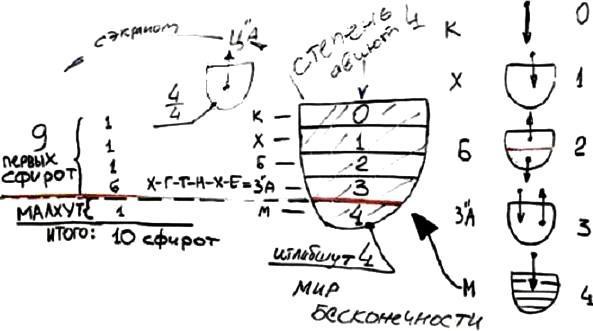 с экраном
Ц"А
4/4
степень
авиют 4
К
0
Х
1
Б
2
З"А
3
М
4
К — 0
Х — 1
Б — 2
Х-Г-Т-Н-Х-Е=З"А — 3
М — 4
9
первых
сфирот
1
1
1
6
МАЛХУТ 1
ИТОГО: 10 сфирот
итлабшут 4
мир
бесконечности